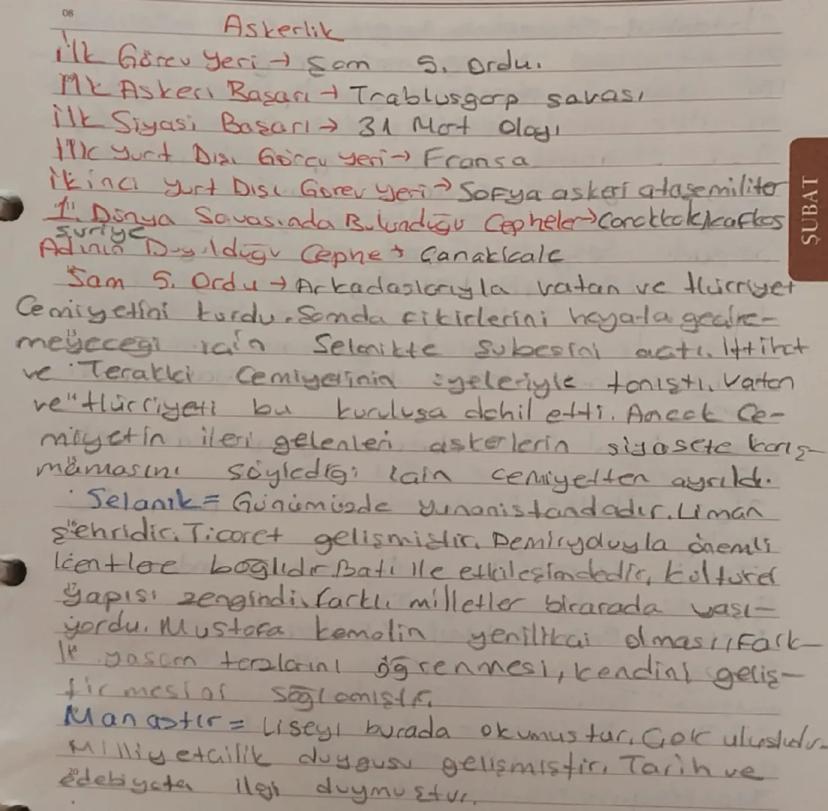 08
Askerlik
ilk Görev yeri → Şam 5. Ordu.
İlk Askeri Başarı → Trablusgarp savaşı
ilk Siyasi Başarı → 31 Mart Olayı
İlk yurt Dışı Görev yeri → Fransa
ikinci yurt Dışı Görev yeri → Sofya askeri ataşemiliter
ŞUBAT
1. Dünya Savaşında Bulunduğu Cepheler →
suriye
Adının Duyulduğu Cephe → Çanakkale
Şam 5. Ordu → Arkadaşlarıyla vatan ve Hürriyet
Cemiyetini kurdu. Şamda fikirlerini hayata geçire-
meyeceği için Selanikte şubesini açtı. İttihat
ve Terakki Cemiyetinin üyeleriyle tanıştı. Vatan
ve Hürriyeti bu kuruluşa dahil etti. Ancak Ce-
miyetin ileri gelenleri askerlerin siyasete karış-
mamasını söylediği için cemiyetten ayrıldı.
Selanik = Günümüzde yunanistandadır. Liman
şehridir. Ticaret gelişmiştir. Demiryoluyla önemli
kentlere bağlıdır Batı ile etkileşimdedir, kültürel
yapısı zengindi. farklı milletler birarada yaşı-
yordu. Mustafa kemalin yenilikçi olması, fark-
lı yaşam tarzlarını öğrenmesi, kendini geliş-
tirmesini sağlamıştır.
Manastır = Liseyi burada okumuştur. Çok ulusludur.
Milliyetçilik duygusu gelişmiştir. Tarih ve
edebiyata ilgi duymuştur.